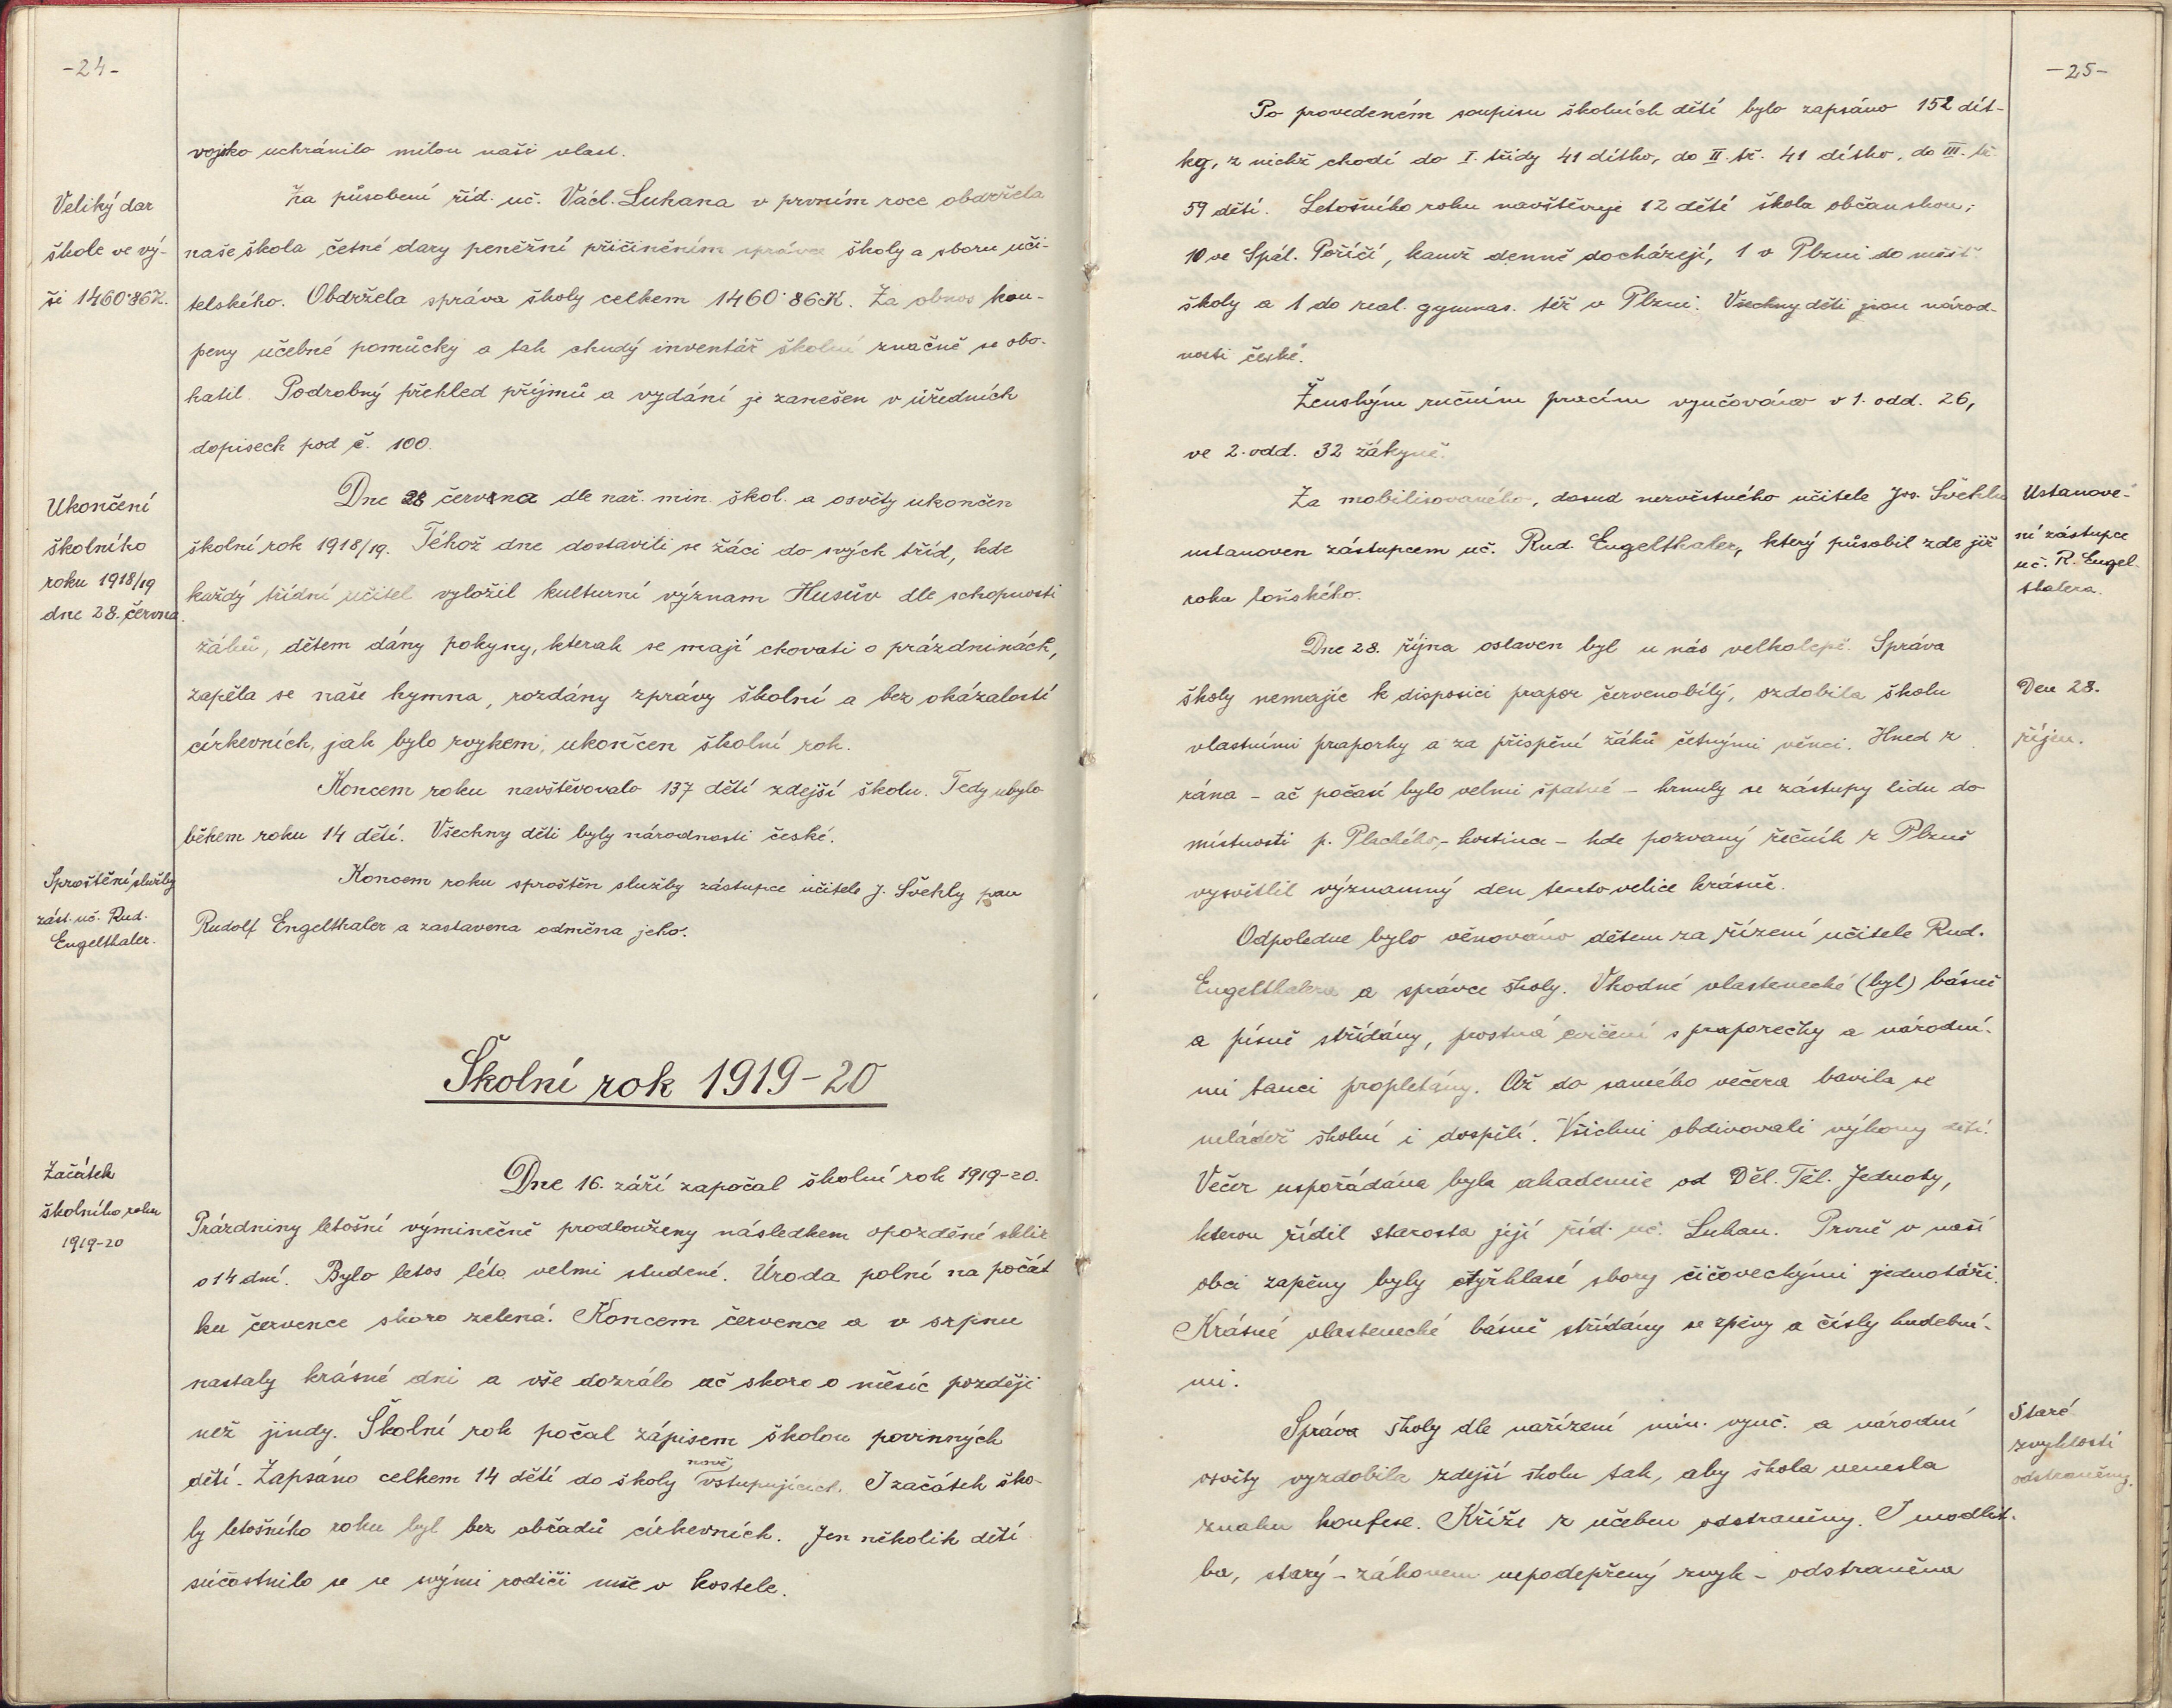 -24-
vojsko uchránilo milou naši vlast.
Veliký dar
škole ve vý-
ši 1460·86K.
Za působení říd. uč. Václ. Luhana v prvním roce obdržela
naše škola četné dary peněžní přičiněním správce školy a sboru uči-
telského. Obdržela správa školy celkem 1460·86K. Za obnos kou-
peny učebné pomůcky a tak chudý inventář školní značně se obo-
hatil. Podrobný přehled příjmů a vydání je zanešen v úředních
dopisech pod č. 100.
Ukončení
školního
roku 1918/19
dne 28. června.
Dne 28 června dle nař. min. škol. a osvěty ukončen
školní rok 1918/19. Téhož dne dostavili se žáci do svých tříd, kde
každý třídní učitel vyložil kulturní význam Husův dle schopnosti
žáků, dětem dány pokyny, kterak se mají chovati o prázdninách,
zapěla se naše hymna, rozdány zprávy školní a bez okázalostí
církevních, jak bylo zvykem, ukončen školní rok.
Koncem roku navštěvovalo 137 dětí zdejší školu. Tedy ubylo
během roku 14 dětí. Všechny děti byly národnosti české.
Sproštění služby
zást. uč. Rud.
Engelthaler.
Koncem roku sproštěn služby zástupce učitele J. Švehly pan
Rudolf Engelthaler a zastavena odměna jeho.
Školní rok 1919-20
Začátek
školního roku
1919-20
Dne 16. září započal školní rok 1919-20.
Prázdniny letošní výminečně prodlouženy následkem opozděné sklizě
o 14 dní. Bylo letos léto velmi studené. Úroda polní na počát
ku července skoro zelená. Koncem července a v srpnu
nastaly krásné dni a vše dozrálo ač skoro o měsíc později
než jindy. Školní rok počal zápisem školou povinných
dětí. Zapsáno celkem 14 dětí do školy nově vstupujících. I začátek ško-
ly letošního roku byl bez obřadů církevních. Jen několik dětí
súčastnilo se se svými rodiči mše v kostele.
-25-
Po provedeném soupisu školních dětí bylo zapsáno 152 dít-
ky, z nichž chodí do I. třídy 41 dítko, do II. tř. 41 dítko, do III. tř.
59 dětí. Letošního roku navštěvuje 12 dětí škola občanskou;
10 ve Spál. Poříčí, kamž denně docházejí, 1 v Plzni do měšť.
školy a 1 do real. gymnas. též v Plzni. Všechny děti jsou národ-
nosti české.
Ženským ručním pracím vyučováno v 1. odd. 26,
ve 2. odd. 32 žákyně.
Za mobilisovaného, dosud nezvěstného učitele Jos. Švehlu
ustanoven zástupcem uč. Rud. Engelthaler, který působil zde již
roku loňského.
Ustanove-
ní zástupce
uč. R. Engel-
thalera.
Dne 28. října oslaven byl u nás velkolepě. Správa
školy nemajíc k disposici prapor červenobílý, ozdobila školu
vlastními praporky a za přispění žáků četnými věnci. Hned z
rána - ač počasí bylo velmi špatné - hrnuly se zástupy lidu do
místnosti p. Plachého,- hostince - kde pozvaný řečník z Plzně
vysvětlil významný den tento velice krásně.
Den 28.
říjen.
Odpoledne bylo věnováno dětem za řízení učitele Rud.
Engelthalera a správce školy. Vhodné vlastenecké (byl) básně
a písně střídány, prostná cvičení s praporečky a národní-
mi tanci proplétány. Až do samého večera bavila se
mládež školní i dospělí. Všichni obdivovali výkony dětí.
Večer uspořádána byla akademie od Děl. Těl. Jednoty,
kterou řídil starosta její říd. uč. Luhan. Prvně v naší
obci zapěny byly čtyřhlasé sbory čičoveckými jednotáři.
Krásné vlastenecké básně střídány se zpěvy a čísly hudební-
mi.
Správa školy dle nařízení min. vyuč. a národní
osvěty vyzdobila zdejší školu tak, aby škola nenesla
znaku konfese. Kříže z učeben odstraněny. I modlit-
ba, starý - zákonem nepodepřený zvyk - odstraněna
Staré
zvyklosti
odstraněny.